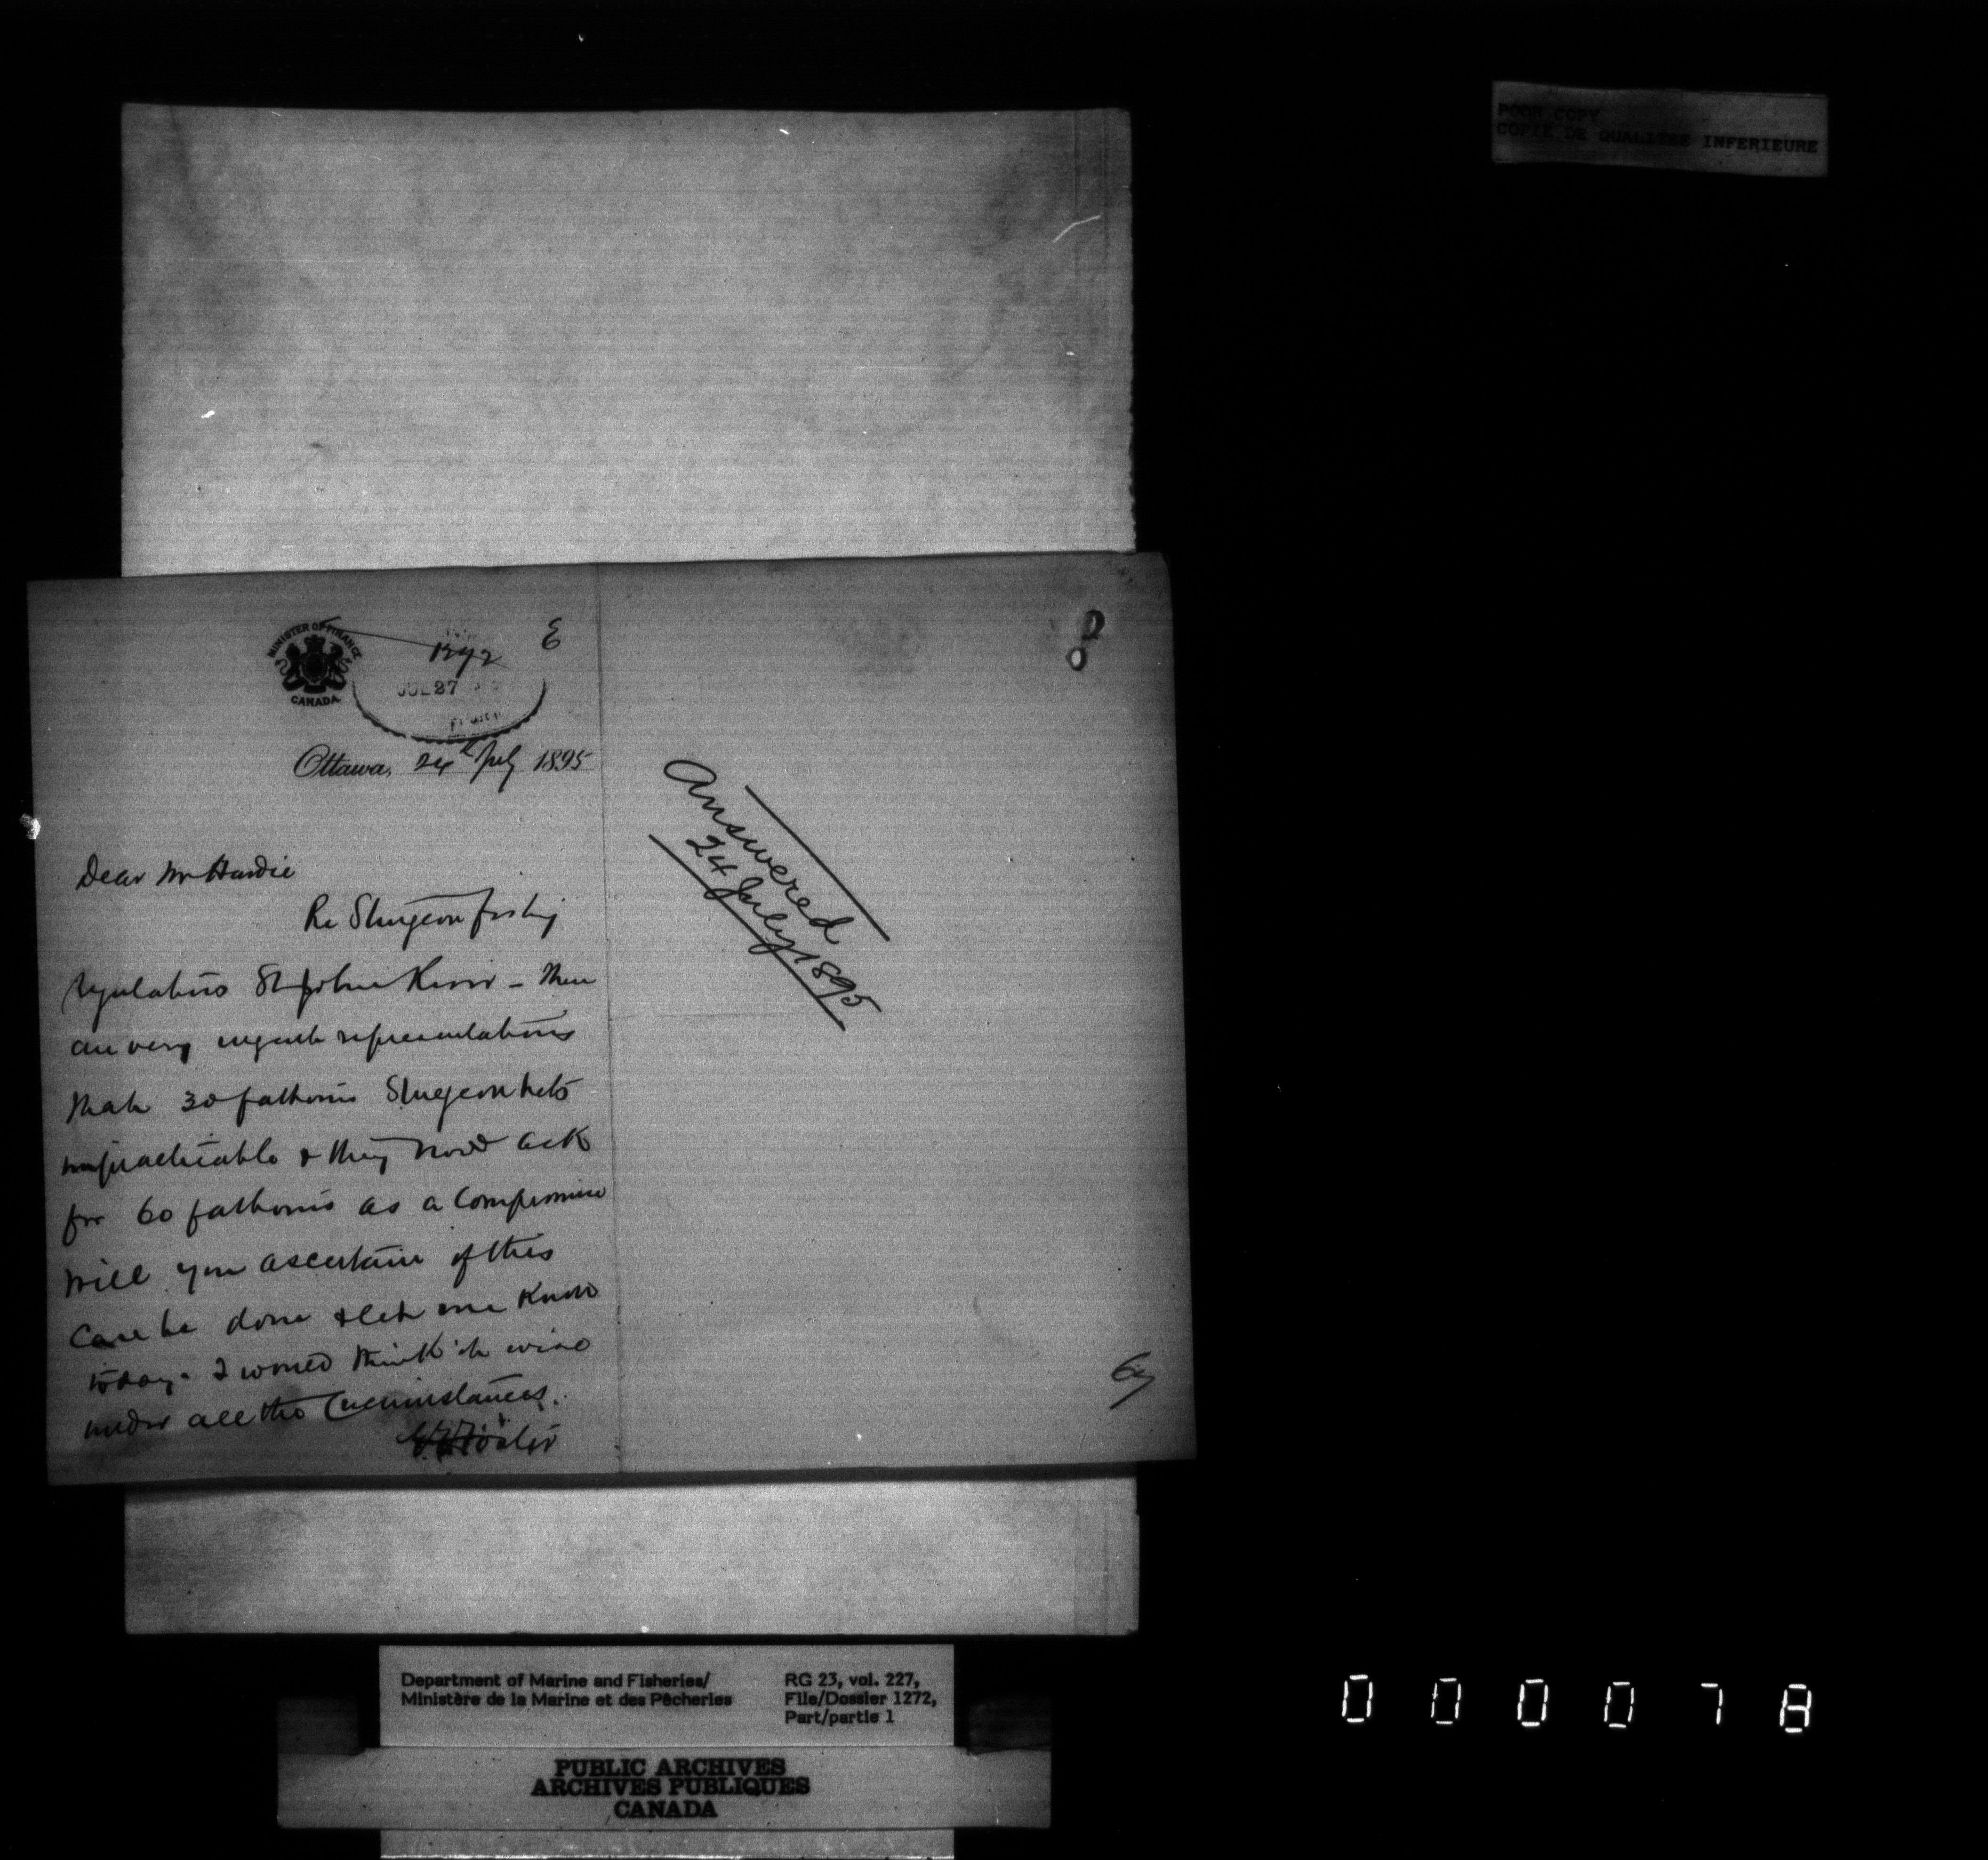 POOR COPY
COPIE DE QUALITEE INFERIEURE
MINISTER OF FINANCE
CANADA
1272
E
JUL 27
Ottawa, 24th July 1895
Dear Mr Hardie
Re Sturgeon fishing
regulations St John River – There
are very urgent representations
that 30 fathoms Sturgeon nets
impracticable & they now ask
for 60 fathoms as a compromise
Will you ascertain if this
can be done & let me know
today – I would think it wise
under all the circumstances.
G E Foster
Answered
24 July 1895
67
Department of Marine and Fisheries/
Ministère de la Marine et des Pêcheries
RG 23, vol. 227,
File/Dossier 1272,
Part/partie 1
PUBLIC ARCHIVES
ARCHIVES PUBLIQUES
CANADA
000078